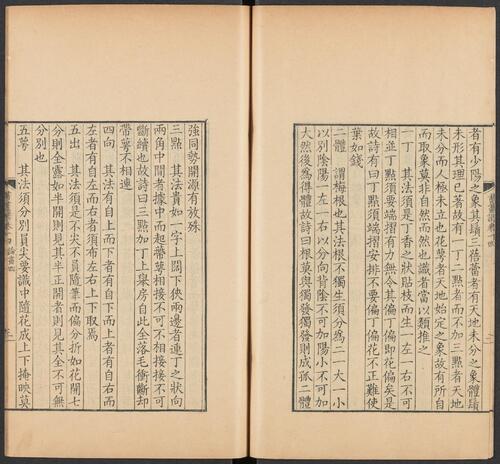 者有少陽之象其鬚三蓓蕾者有天地未分之象體鬚
未形其理已著故有一丁二點者而不加三點者天地
未分而人極未立也花萼者天地始定之象故有所自
而取象莫非自然而然也識者當以類推之
一丁 其法須是丁香之狀貼枝而生一左一右不可
相並丁點須要端揩有力無令其偏丁偏即花偏矣是
故詩有曰丁點須端揩安排不要偏丁偏花不正難使
葉如錢
二體 謂梅根也其法根不獨生須分為二一大一小
以別陰陽一左一右以分向背陰不可加陽小不可加
大然後為得體故詩曰根莫與獨發獨發則成孤二體
強同勢開源有放殊
三點 其法貴如一字上闊下狹兩邊者連丁之狀向
兩角中間者據中而起蒂萼相接不可不相接接不可
斷續也故詩曰三點加丁上舉房自此全落毛衝斷却
帶萼不相連
四向 其法有自上而下者有自下而上者有自右而
左者有自左而右者須布左右上下取焉
五出 其法須是不尖不員隨筆而偏分折如花開七
分則全露如半開則見其半正開者則見其全不可無
分別也
五萼 其法須分別員尖要識中隨花成上下掩映莫